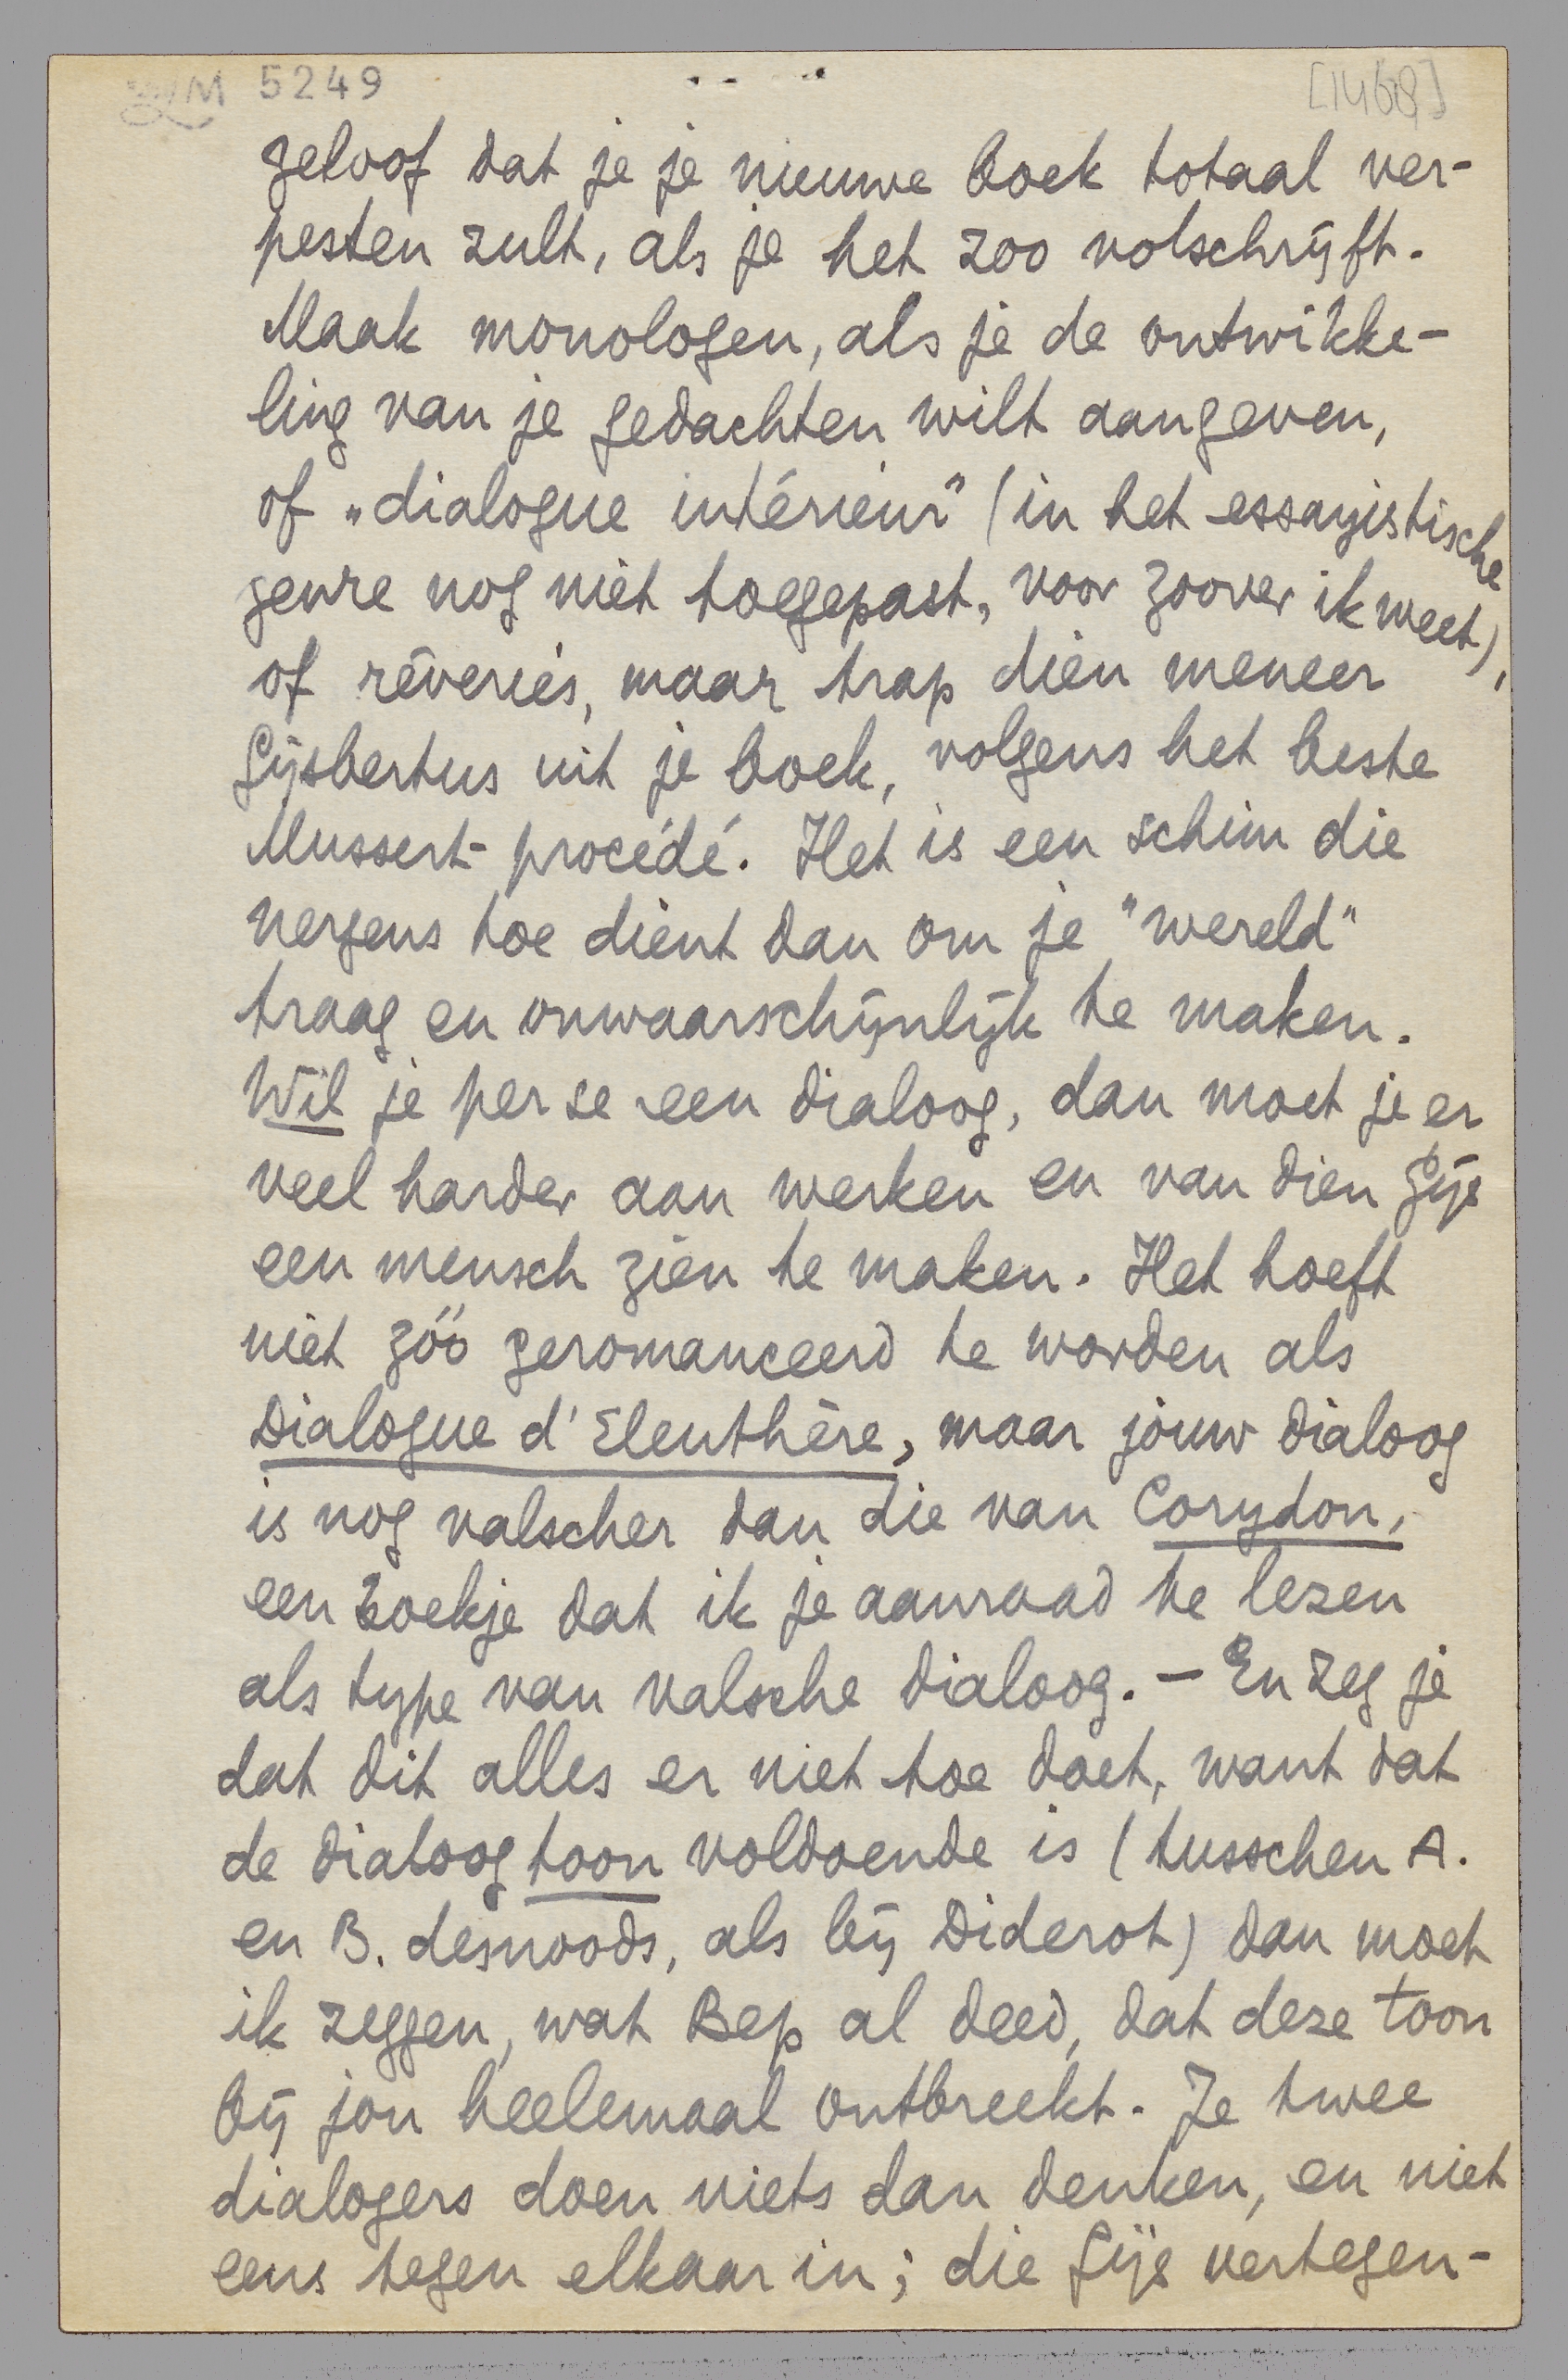 5249
geloof dat je je nieuwe boek totaal ver-
pesten zult, als je het zoo volschrijft.
Maak monologen, als je de ontwikke-
ling van je gedachten wilt aangeven,
of „dialogue intérieur” (in het essayistische
genre nog niet toegepast, voor zoover ik weet),
of rêveries, maar trap dien meneer
Gijsbertus uit je boek, volgens het beste
Mussert-procédé. Het is een schim die
nergens toe dient dan om je "wereld"
traag en onwaarschijnlijk te maken.
Wil je per se een dialoog, dan moet je er
veel harder aan werken en van dien Gijs
een mensch zien te maken. Het hoeft
niet zóó geromanceerd te worden als
Dialogue d'Eleuthère, maar jouw dialoog
is nog valscher dan die van Corydon,
een boekje dat ik je aanraad te lezen
als type van valsche dialoog. — En zeg je
dat dit alles er niet toe doet, want dat
de dialoogtoon voldoende is (tusschen A.
en B. desnoods, als bij Diderot) dan moet
ik zeggen, wat Bep al deed, dat deze toon
bij jou heelemaal ontbreekt. Je twee
dialogers doen niets dan denken, en niet
eens tegen elkaar in; die Gijs vertegen-